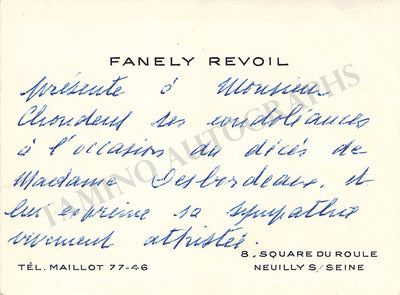 FANELY REVOIL
présente à Monsieur
Choudens ses condoléances
à l'occasion du décès de
Madame Desbordeaux, et
lui exprime sa sympathie
vivement attristée.
8, SQUARE DU ROULE
TÉL. MAILLOT 77-46 NEUILLY S/SEINE
TAMINO AUTOGRAPHS